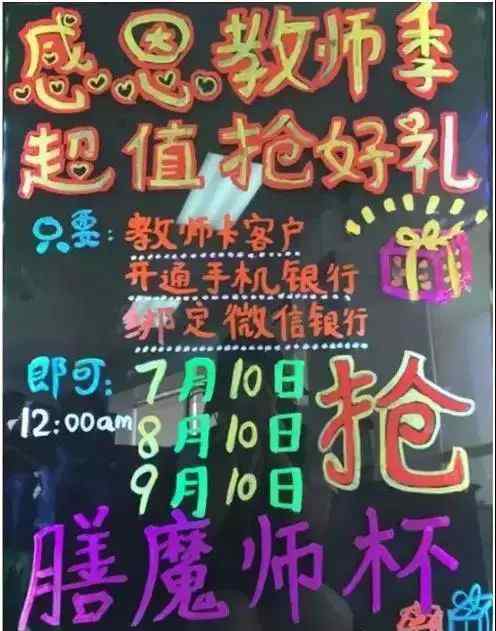 感恩教师季
超值抢好礼
只要:教师卡客户
开通手机银行
绑定微信银行
即可:7月10日
12:00am 8月10日
9月10日
抢
膳魔师杯